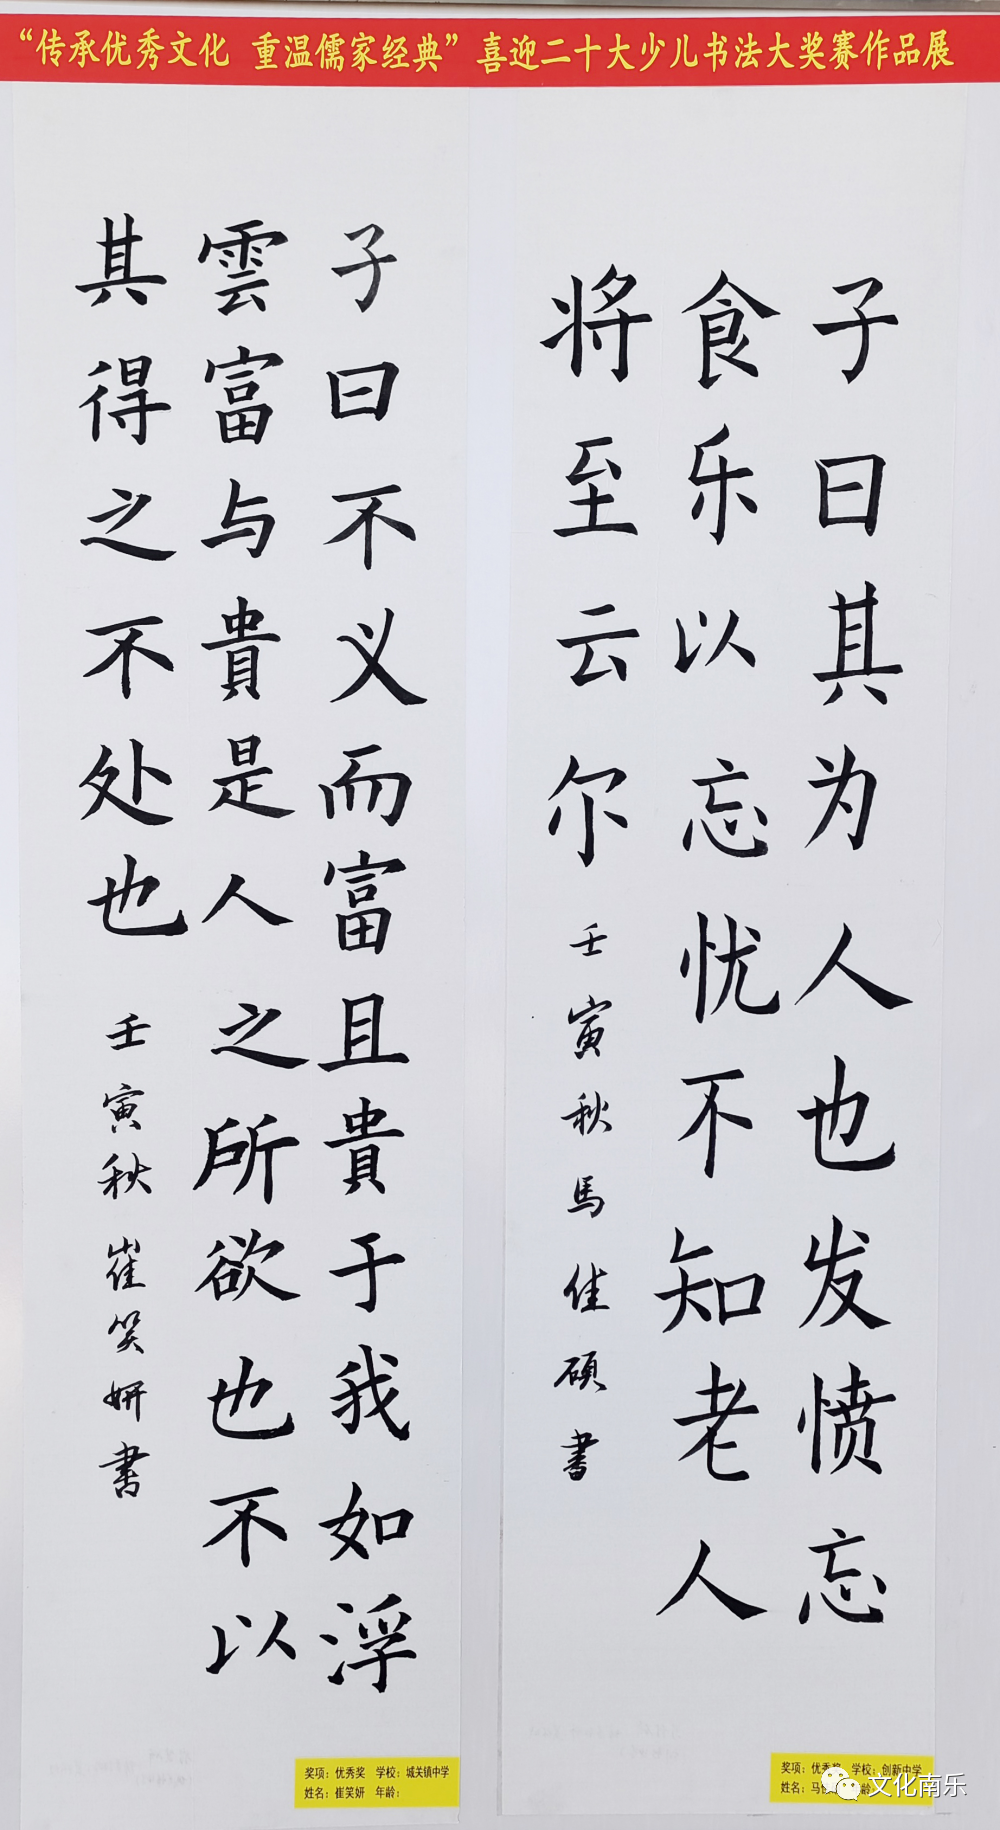 “传承优秀文化 重温儒家经典” 喜迎二十大少儿书法大奖赛作品展
子曰其为人也发愤忘
食乐以忘忧不知老人
将至云尔
壬寅秋馬佳硕書
子曰不义而富且貴于我如浮
雲富与貴是人之所欲也不以
其得之不处也
壬寅秋崔笑妍書
奖项：优秀奖 学校：城关镇中学
姓名：崔笑妍 年龄：
奖项：优秀奖 学校：创新中学
姓名：马
文化南乐